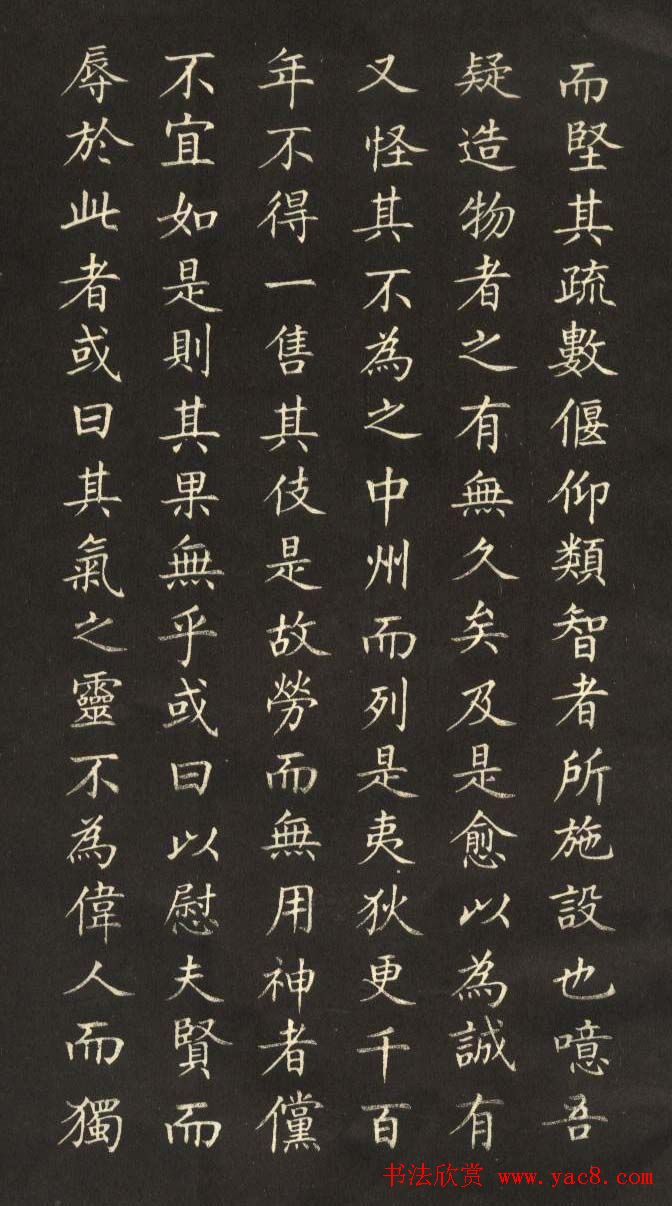 而堅其疏數偃仰類智者所施設也噫吾
疑造物者之有無久矣及是愈以為誠有
又怪其不為之中州而列是夷狄更千百
年不得一售其伎是故勞而無用神者儻
不宜如是則其果無乎或曰以慰夫賢而
辱於此者或曰其氣之靈不為偉人而獨
书法欣赏 www.yac8.com